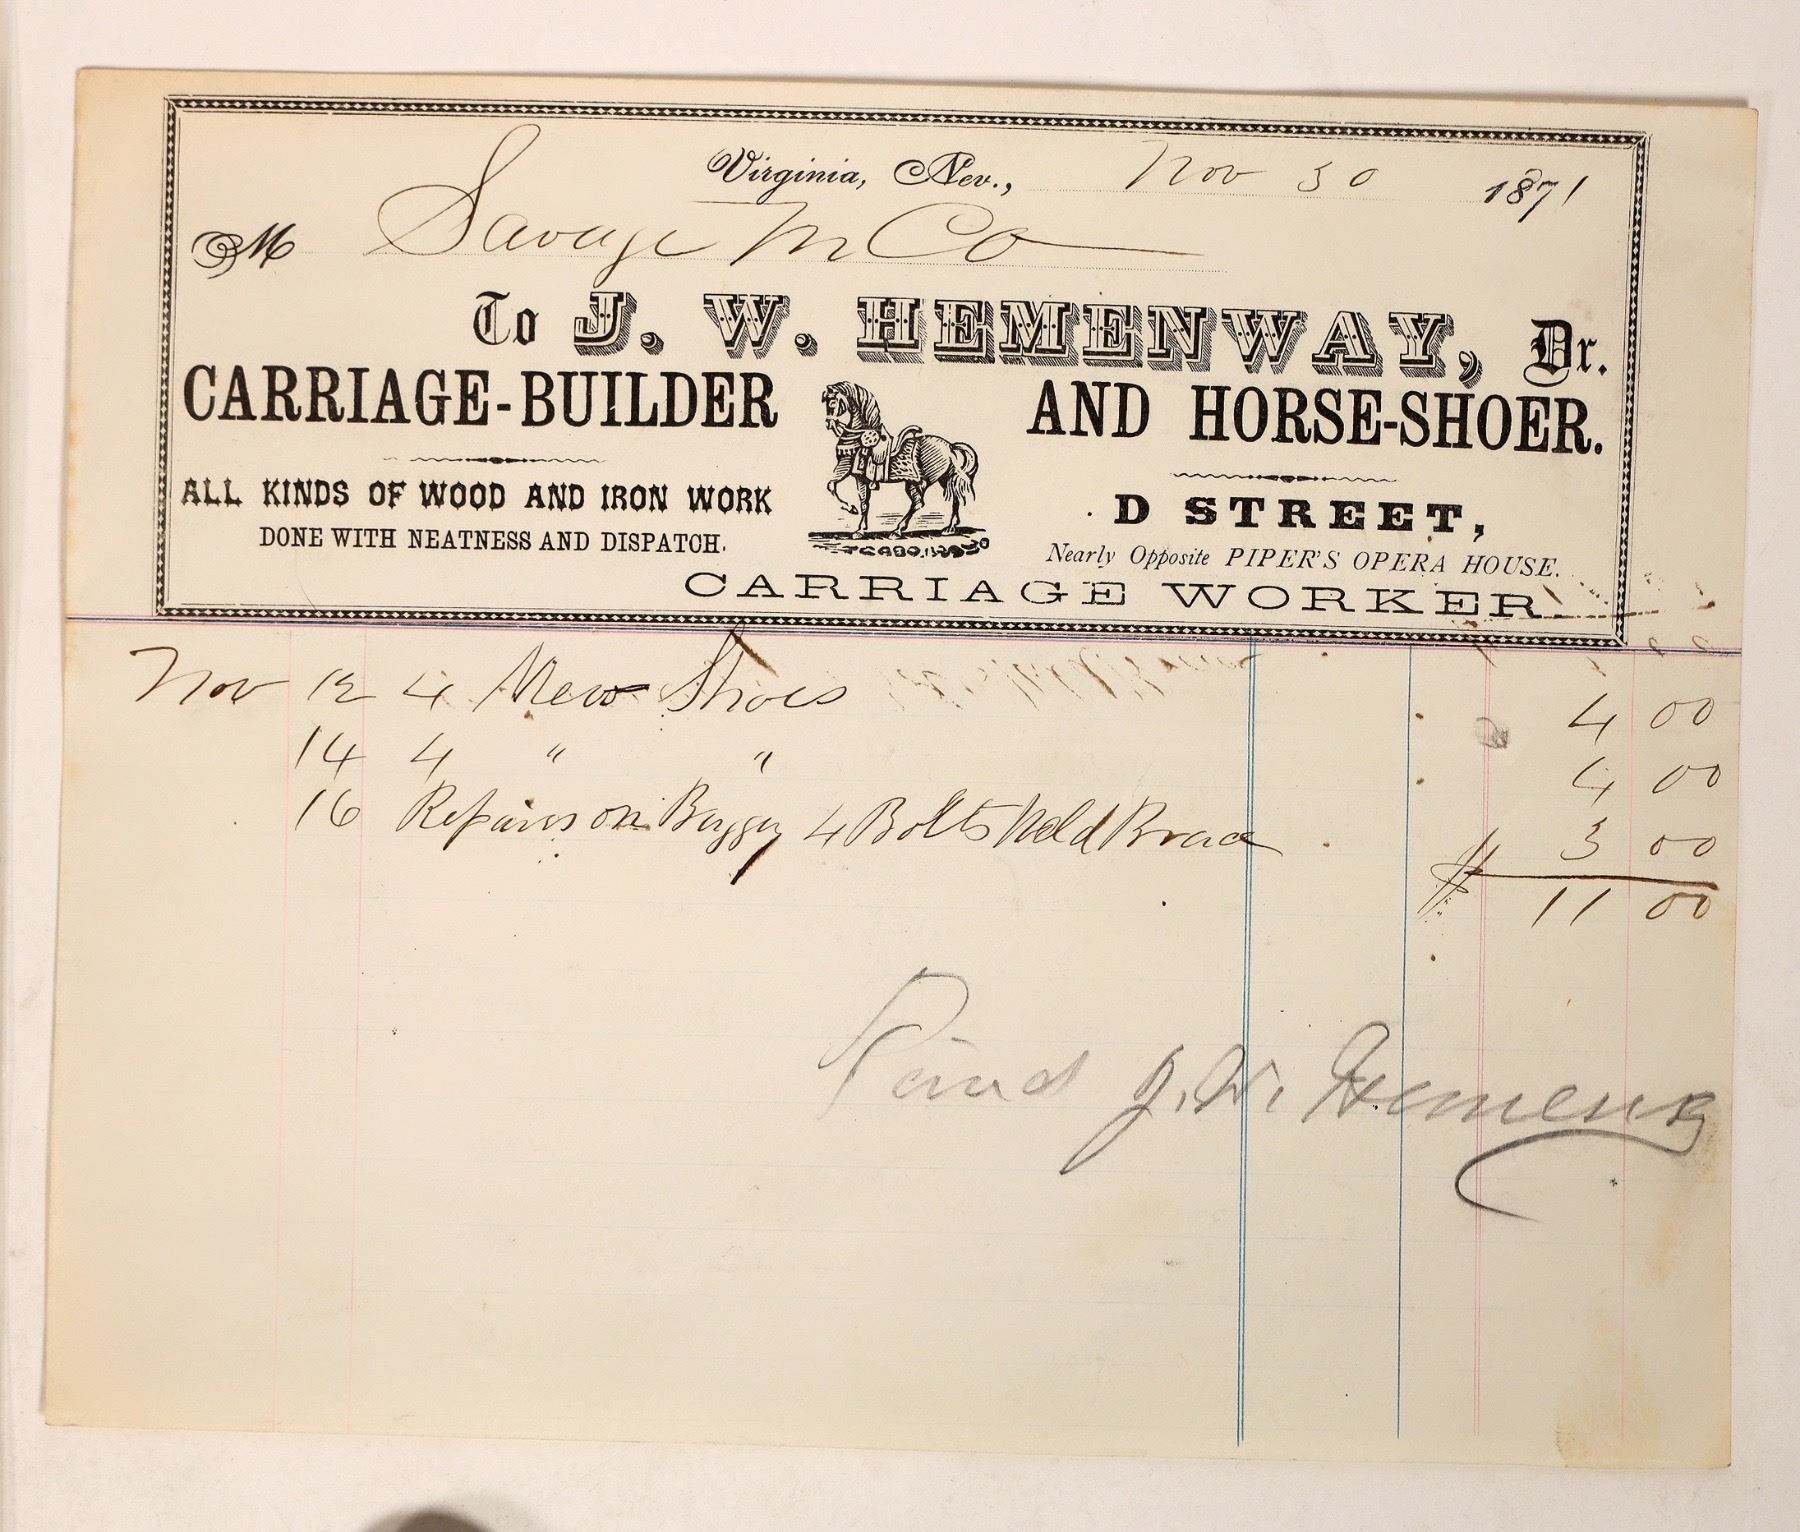 Virginia, Nev., Nov 30 1871
M Savage M Co
To J. W. HEMENWAY, Dr.
CARRIAGE-BUILDER AND HORSE-SHOER.
ALL KINDS OF WOOD AND IRON WORK
DONE WITH NEATNESS AND DISPATCH.
D STREET,
Nearly Opposite PIPER'S OPERA HOUSE.
CARRIAGE WORKER
Nov 12 4 New Shoes 4 00
14 4 " " 4 00
16 Repairs on Buggy 4 Bolts Weld Brace 3 00
$ 11 00
Paid J. W. Hemenway